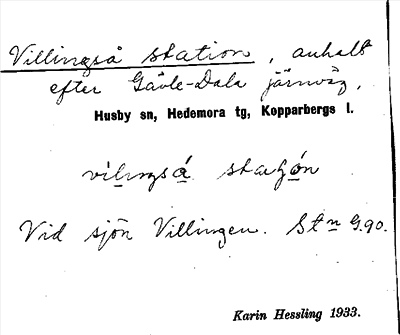 Villingså station, anhalt
efter Gävle-Dala järnväg.
Husby sn, Hedemora tg, Kopparbergs l.
vilingså
Vid sjön Villingen. Stn G.90.
Karin Hessling 1933.